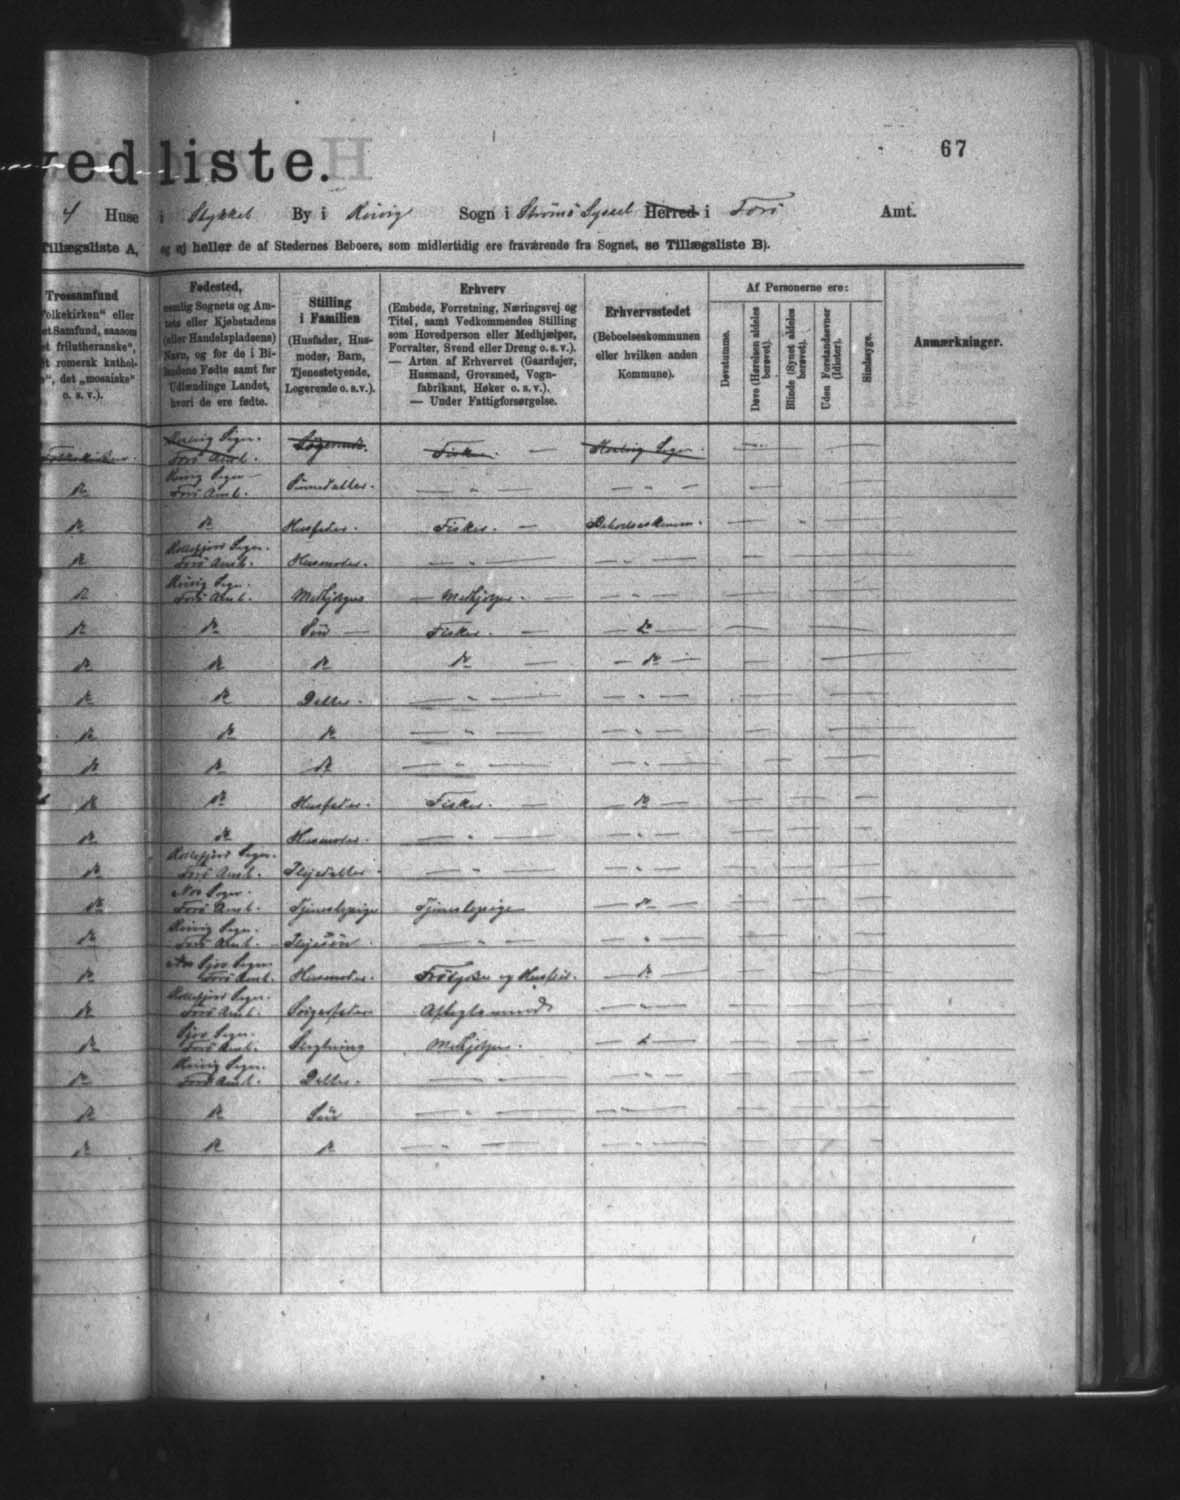 vedliste.
67
4 Huse i Stykket By i Kvivig Sogn i Strömö Syssel Herred i Færö Amt.
Tillægsliste A, og ej heller de af Stedernes Beboere, som midlertidig ere fraværende fra Sognet, se Tillægsliste B).
Trossamfund
Folkekirken" eller
et Samfund, saasom
et frilutheranske",
et romersk kathol-
", det „mosaiske"
o. s. v.).
Fødested,
nemlig Sognets og Am-
tets eller Kjøbstadens
(eller Handelspladsens)
Navn, og for de i Bi-
landene Fødte samt for
Udlændinge Landet,
hvori de ere fødte.
Stilling
i Familien
(Husfader, Hus-
moder, Barn,
Tjenestetyende,
Logerende o. s. v.).
Erhverv
(Embede, Forretning, Næringsvej og
Titel, samt Vedkommendes Stilling
som Hovedperson eller Medhjælper,
Forvalter, Svend eller Dreng o. s. v.).
— Arten af Erhvervet (Gaardejer,
Husmand, Grovsmed, Vogn-
fabrikant, Høker o. s. v.).
— Under Fattigforsørgelse.
Erhvervsstedet
(Beboelseskommunen
eller hvilken anden
Kommune).
Af Personerne ere:
Døvstumme.
Døve (Hørelsen aldeles
berøvet).
Blinde (Synet aldeles
berøvet).
Uden Forstandsevner
(Idioter).
Sindssyge.
Anmærkninger.
Sogn.
Færö Amt.
Logerende.
Fisker. —
Sogn.
Kvivig Sogn
Færö Amt.
do — " — — " —
do do Husfader. Fisker. —
Kollefjord Sogn.
do Færö Amt. Husmoder. — " — — " —
Kvivig Sogn.
do Færö Amt. — " —
do do Sön — Fisker. — do —
do do do do — — do —
do do Datter. — " — — " —
do do do — " — — " —
do do do — " — — " —
do do Husfader. Fisker. — — do —
do do Husmoder. — " — — " —
Kollefjord Sogn.
do Færö Amt. Plejedatter. — " — — " —
Sogn.
do Færö Amt. Tjenestepige Tjenestepige — do —
Kvivig Sogn.
do Færö Amt. Plejesön. — " — — " —
Sogn
do Færö Amt. Husmoder. — do —
Kollefjord Sogn.
do Færö Amt. Aftægtsmand — " —
Sogn.
do Færö Amt. Slægtning — do —
Kvivig Sogn.
do Færö Amt. Datter. — " — — " —
do do Sön — " — — " —
do do do — " — — " —